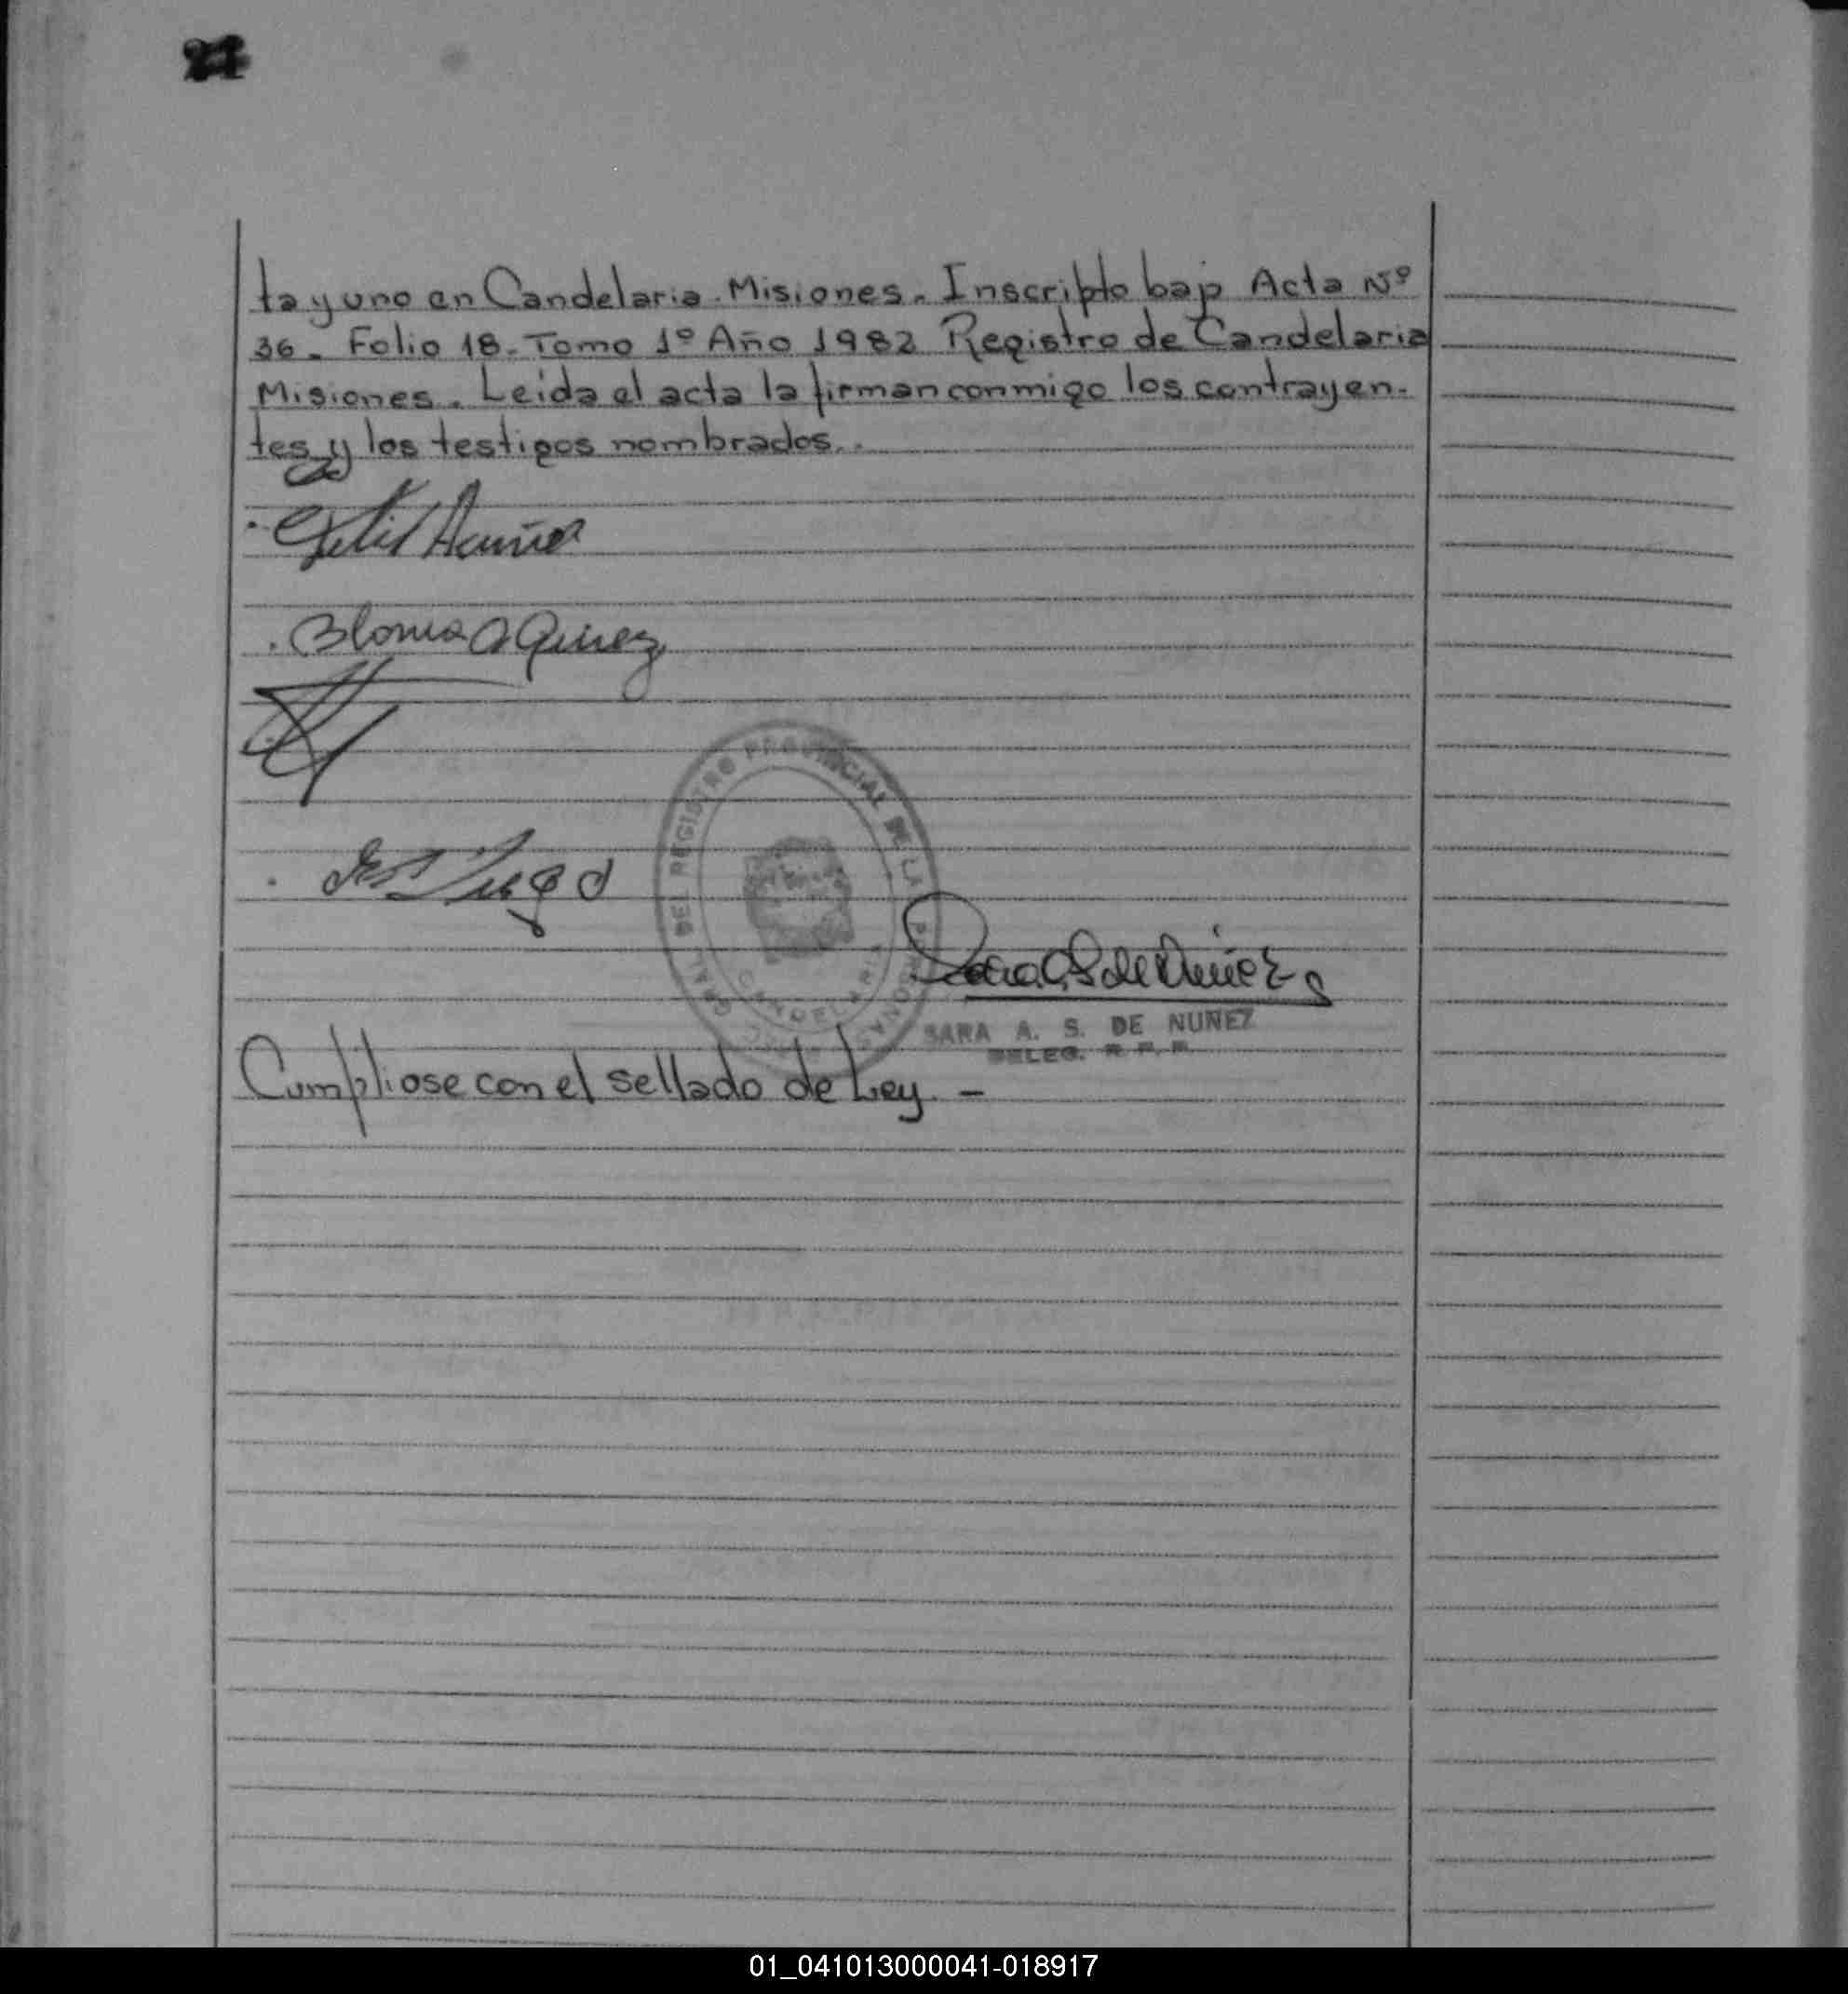 ta y uno en Candelaria. Misiones. Inscripto bajo Acta Nº
36. Folio 18. Tomo 1º Año 1982 Registro de Candelaria
Misiones. Leida el acta la firman conmigo los contrayen-
tes y los testigos nombrados..
Acuña
DEL REGISTRO PROVINCIAL DE LA
CANDELARIA
SARA A. S. DE NUÑEZ
DELEG. R. P. P.
Cumpliose con el sellado de Ley. -
01_041013000041-018917